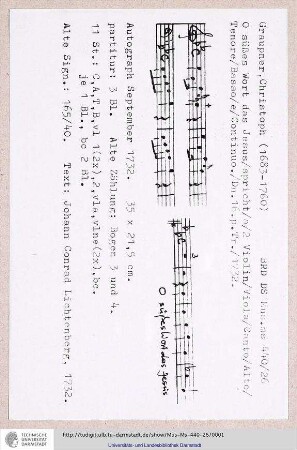 Graupner, Christoph (1683-1760) BRD DS Mus.ms 440/26
O süßes Wort das Jesus/spricht/a/2 Violin/Viola/Canto/Alto/
Tenore/Basso/e/Continuo./Dn.16.p.Tr./1732.
O süßes Wort das Jesus
Autograph September 1732. 35 x 21,5 cm.
partitur: 3 Bl. Alte Zählung: Bogen 3 und 4.
11 St.: C,A,T,B,vl 1(2x),2,vla,vlne(2x),bc.
je 1 Bl., bc 2 Bl.
Alte Sign.: 165/40. Text: Johann Conrad Lichtenberg, 1732.
TECHNISCHE
UNIVERSITÄT
DARMSTADT
http://tudigit.ulb.tu-darmstadt.de/show/Mus-Ms-440-26/0001
Universitäts- und Landesbibliothek Darmstadt